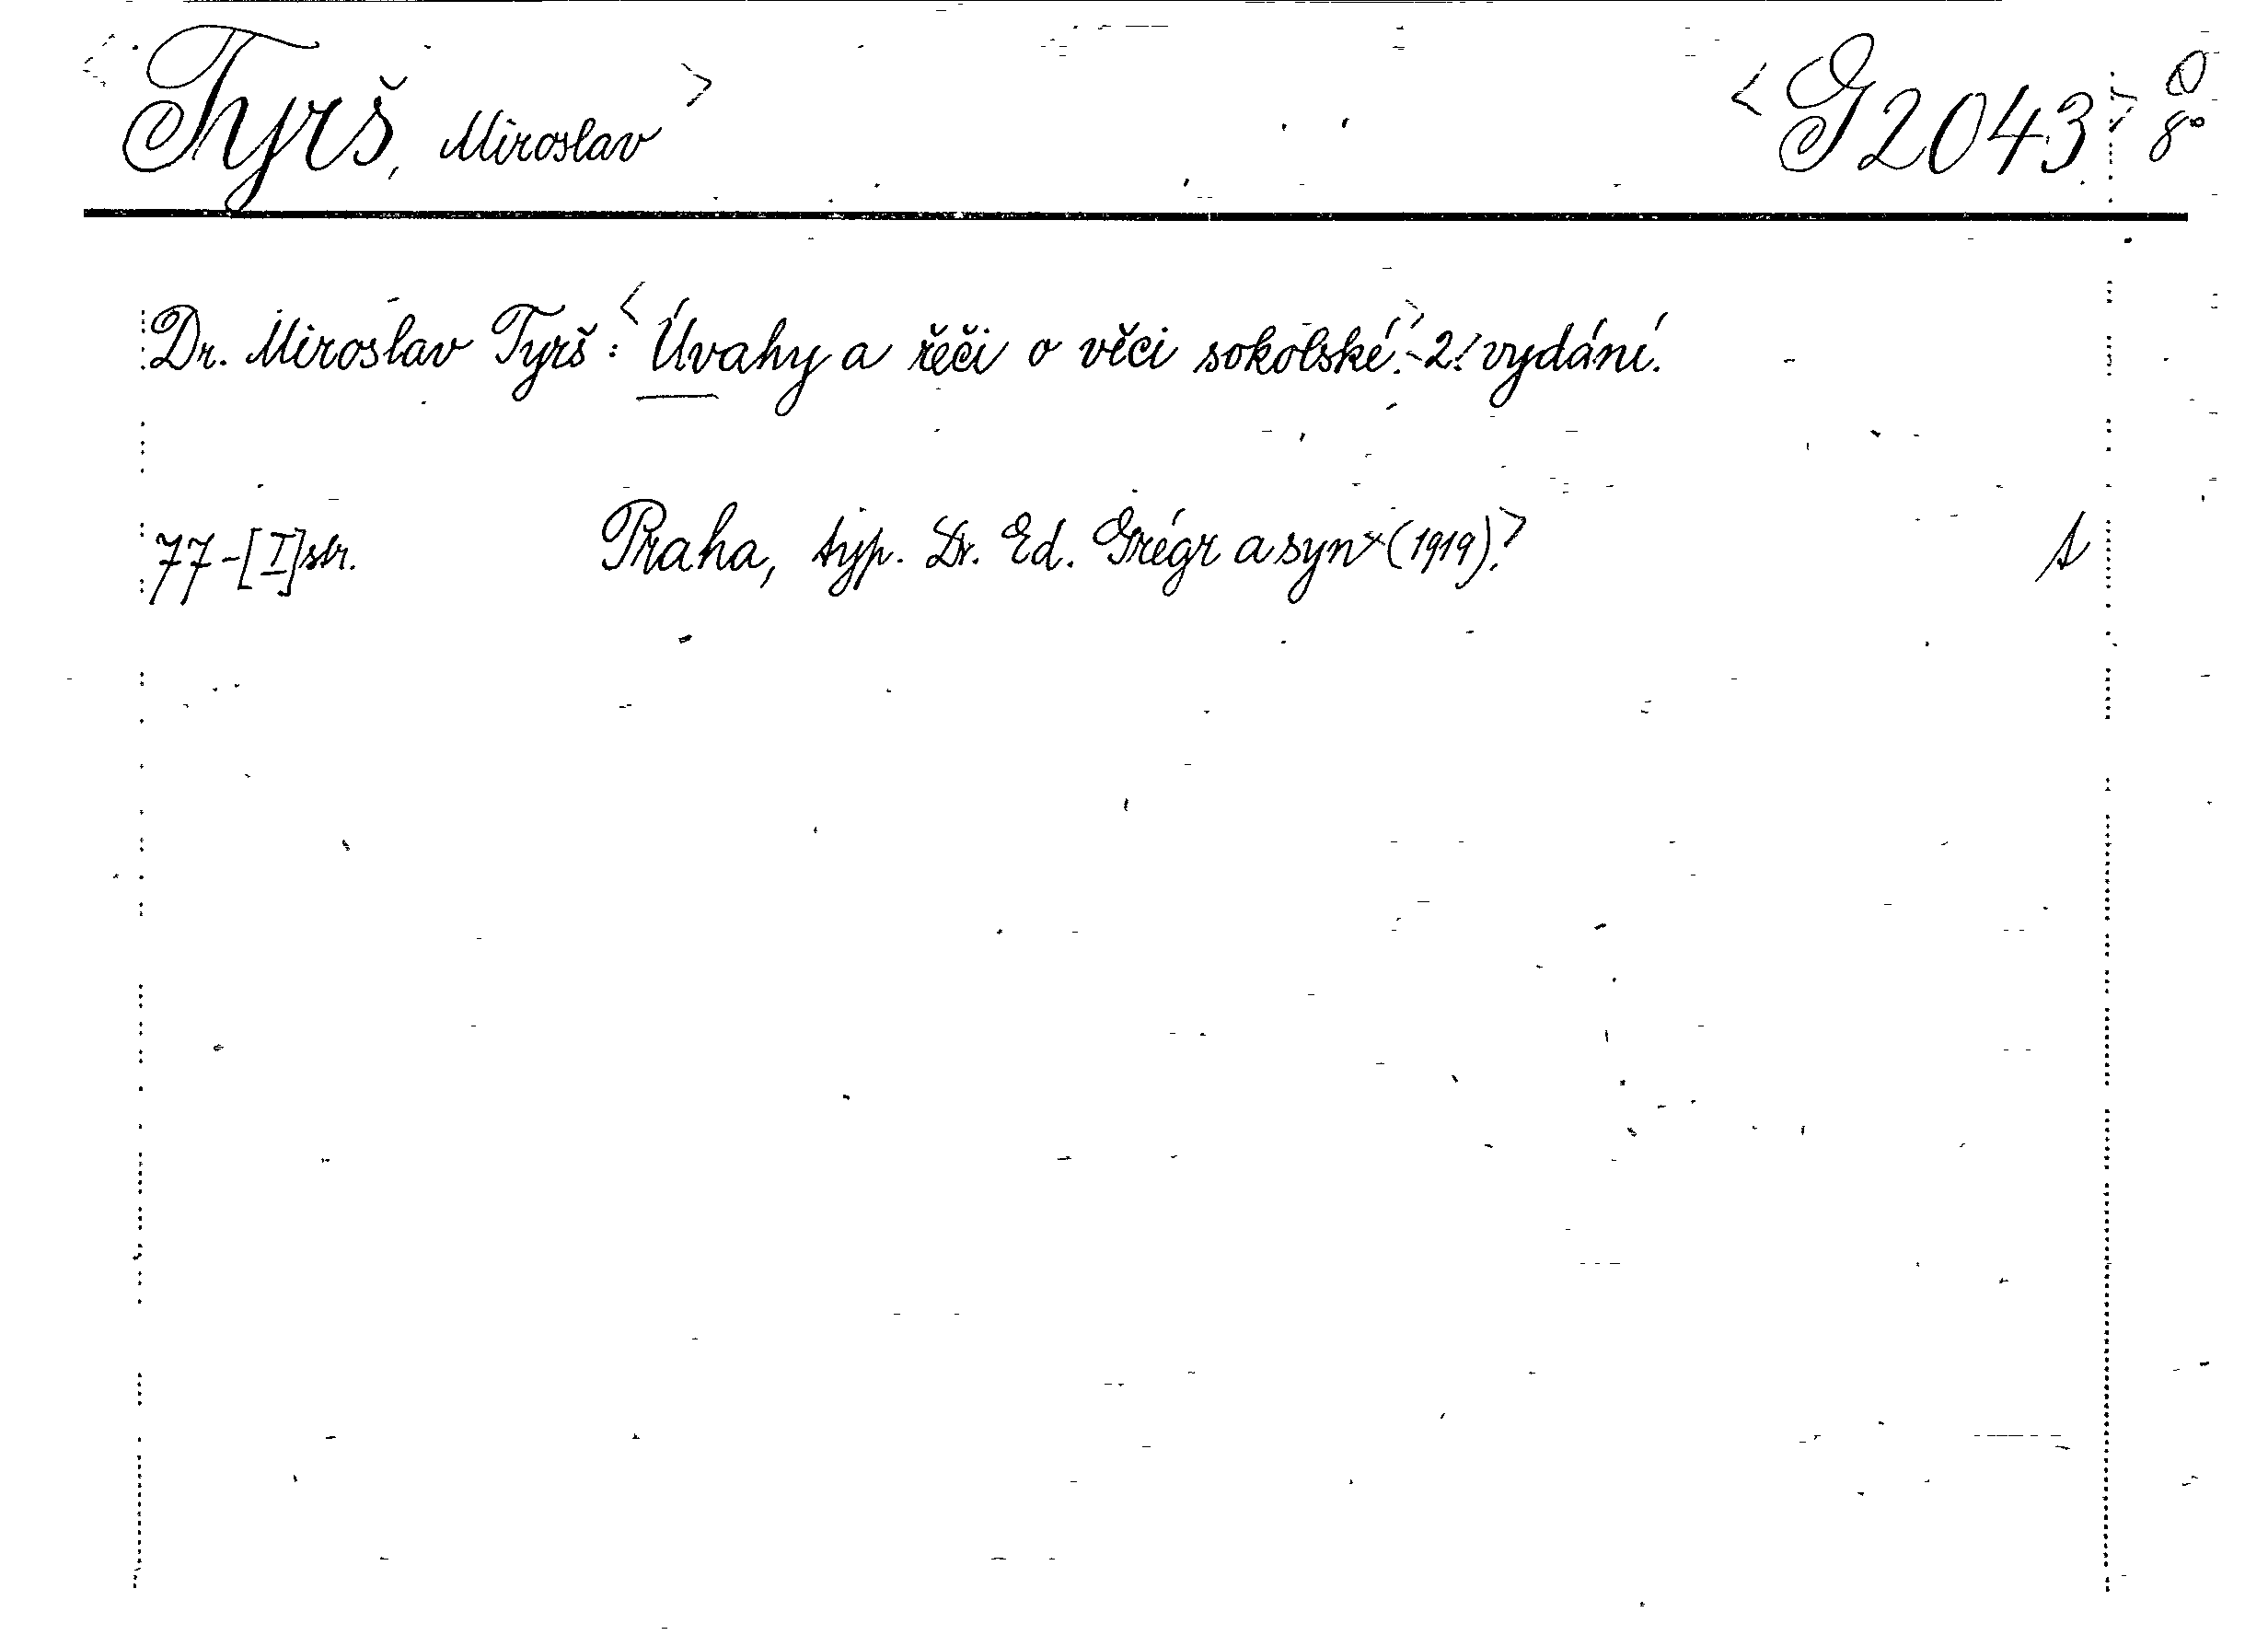 <Tyrš, Miroslav> <G 2043> O 8°
Dr. Miroslav Tyrš: <Úvahy a řeči o věci sokolské.> - 2. vydání.
77-[I] str. Praha, typ. Dr. Ed. Grégr a syn × (1919).>